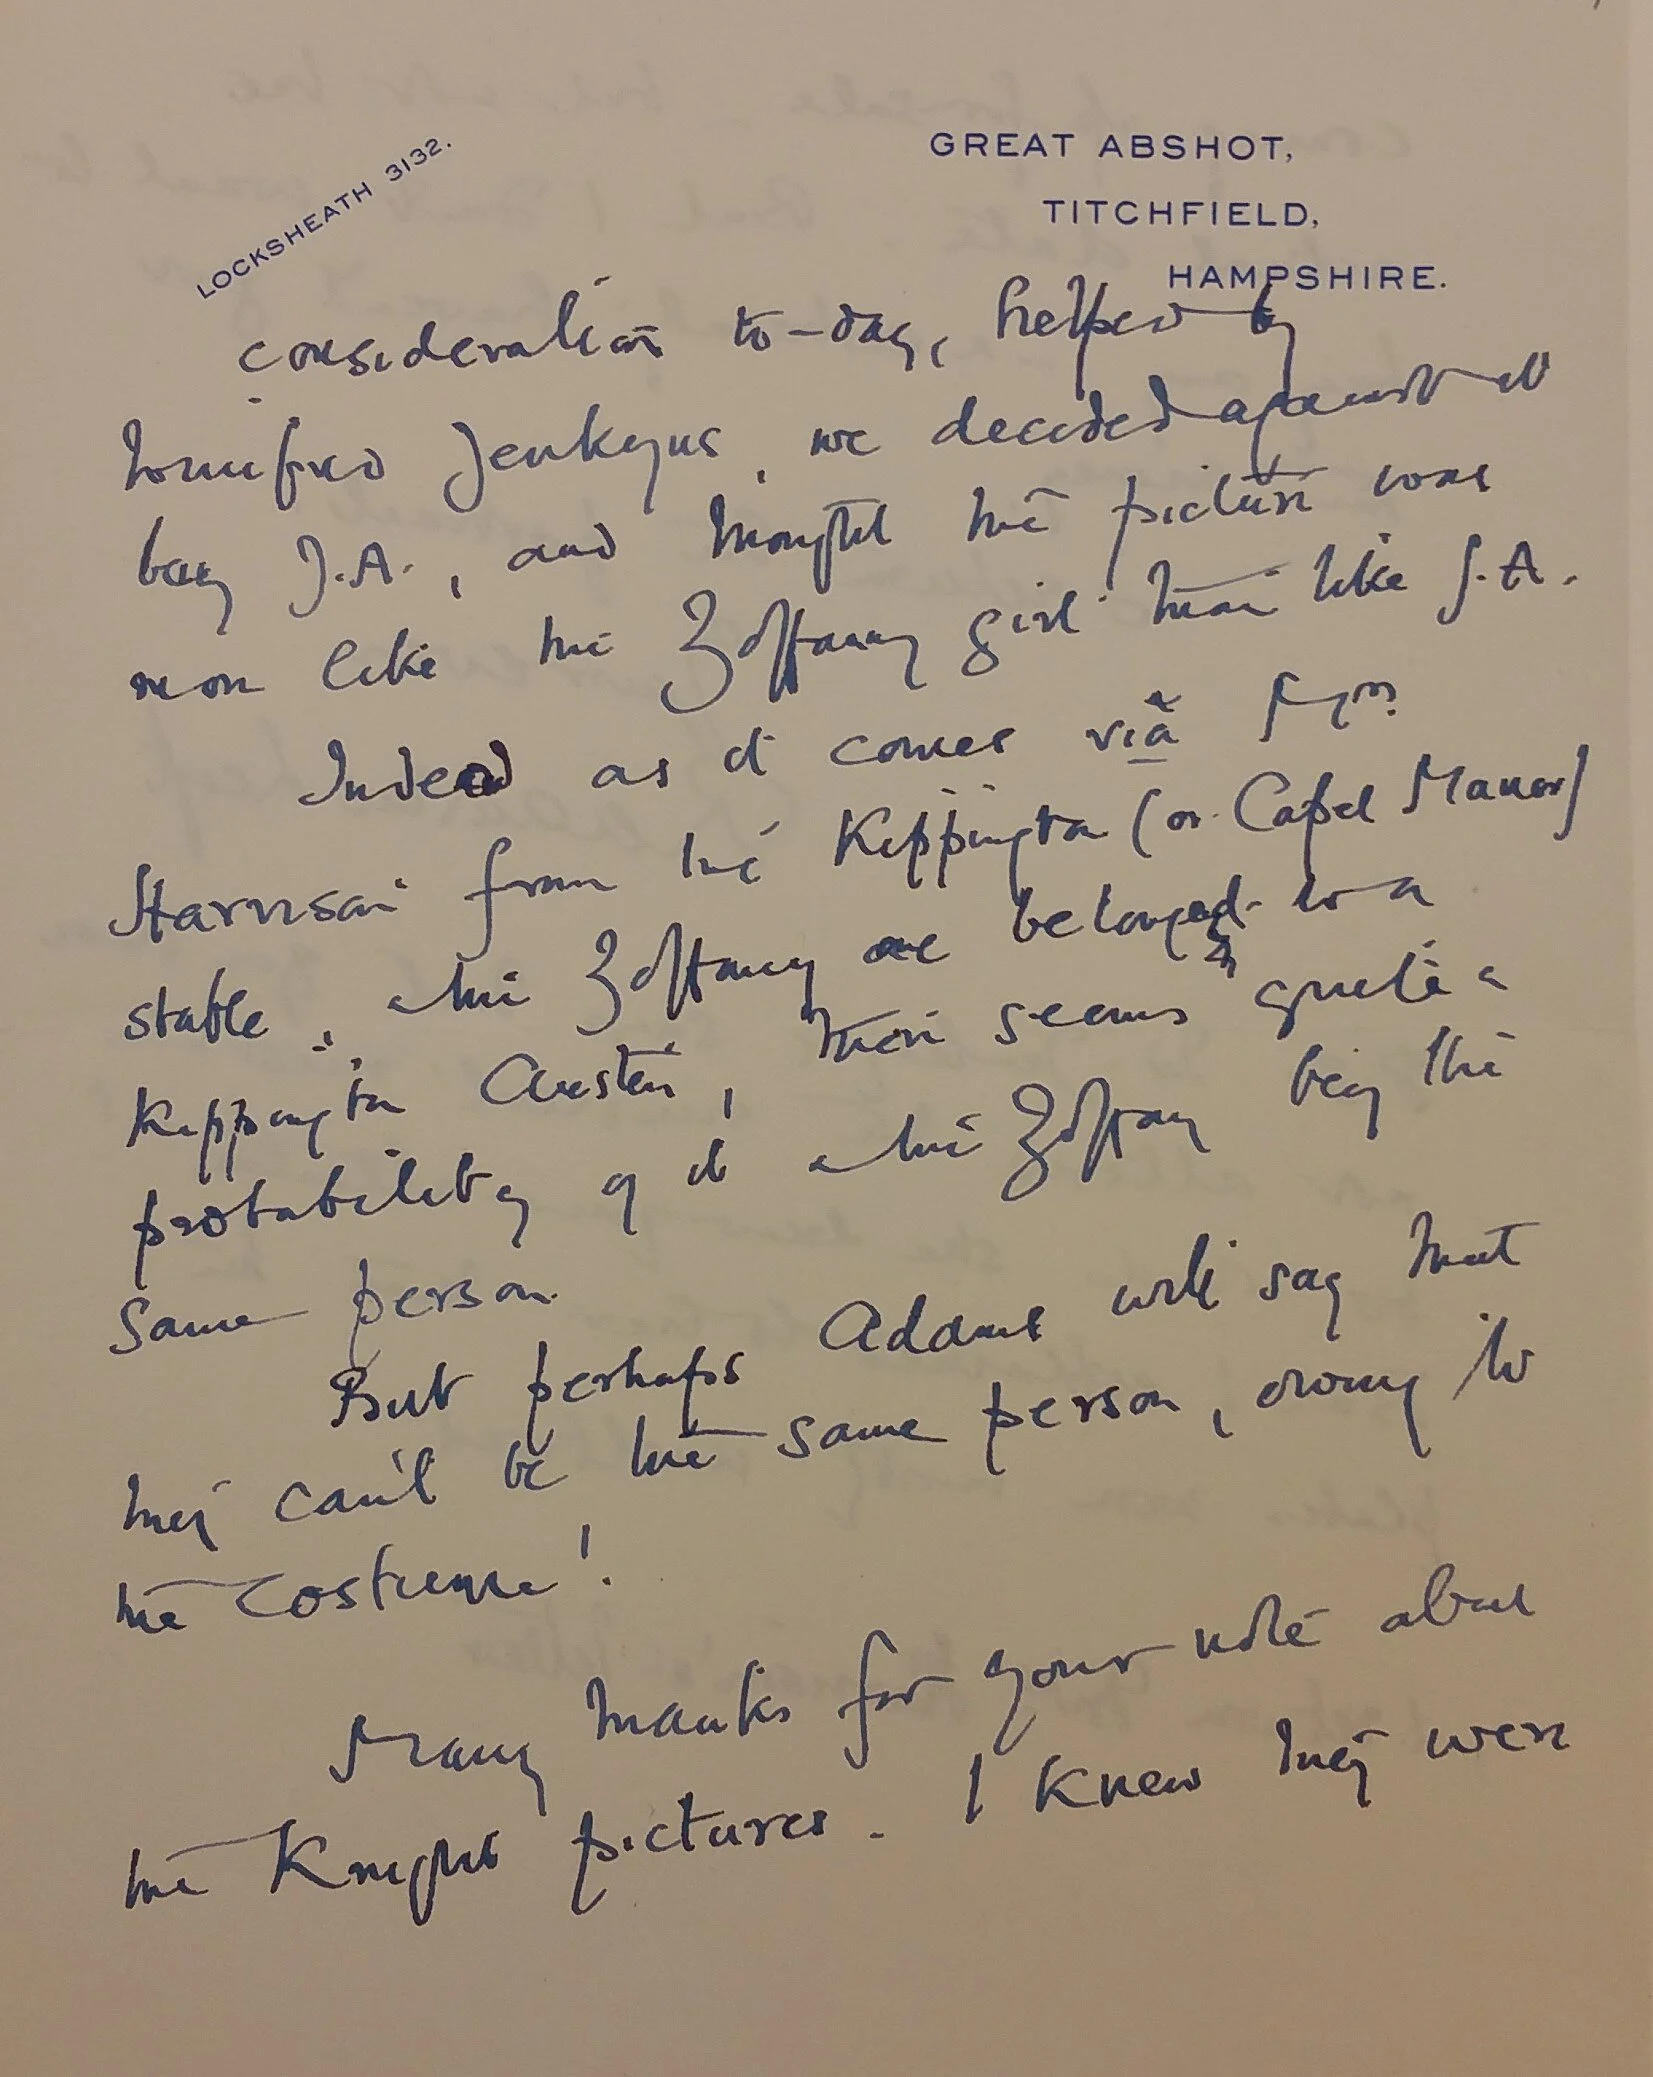 LOCKSHEATH 3132.
GREAT ABSHOT,
TITCHFIELD,
HAMPSHIRE.
consideration to-day, helped by
Winifred Jenkyns, we decided against it
being J.A., and thought the picture was
more like the Zoffany girl than like J.A.
Indeed as it comes via
Harrison from the Kippington (or Capel Manor)
stable, & the Zoffany one belonged to a
Kippington Austen, there seems quite a
probability of it & the Zoffany being the
same person.
But perhaps Adams will say that
they can't be the same person, owing to
the costume!
Many thanks for your note about
the Knight pictures. I knew they were